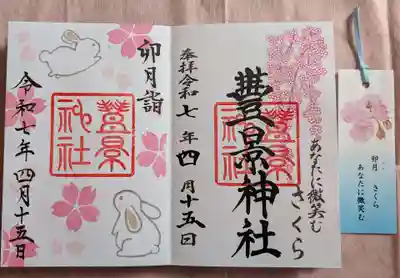 さくら
あなたに微笑む
豐景神社
奉拝 令和七年四月十五日
豊景
神社
卯月詣
豊景
神社
令和七年四月十五日
卯月 さくら
あなたに微笑む